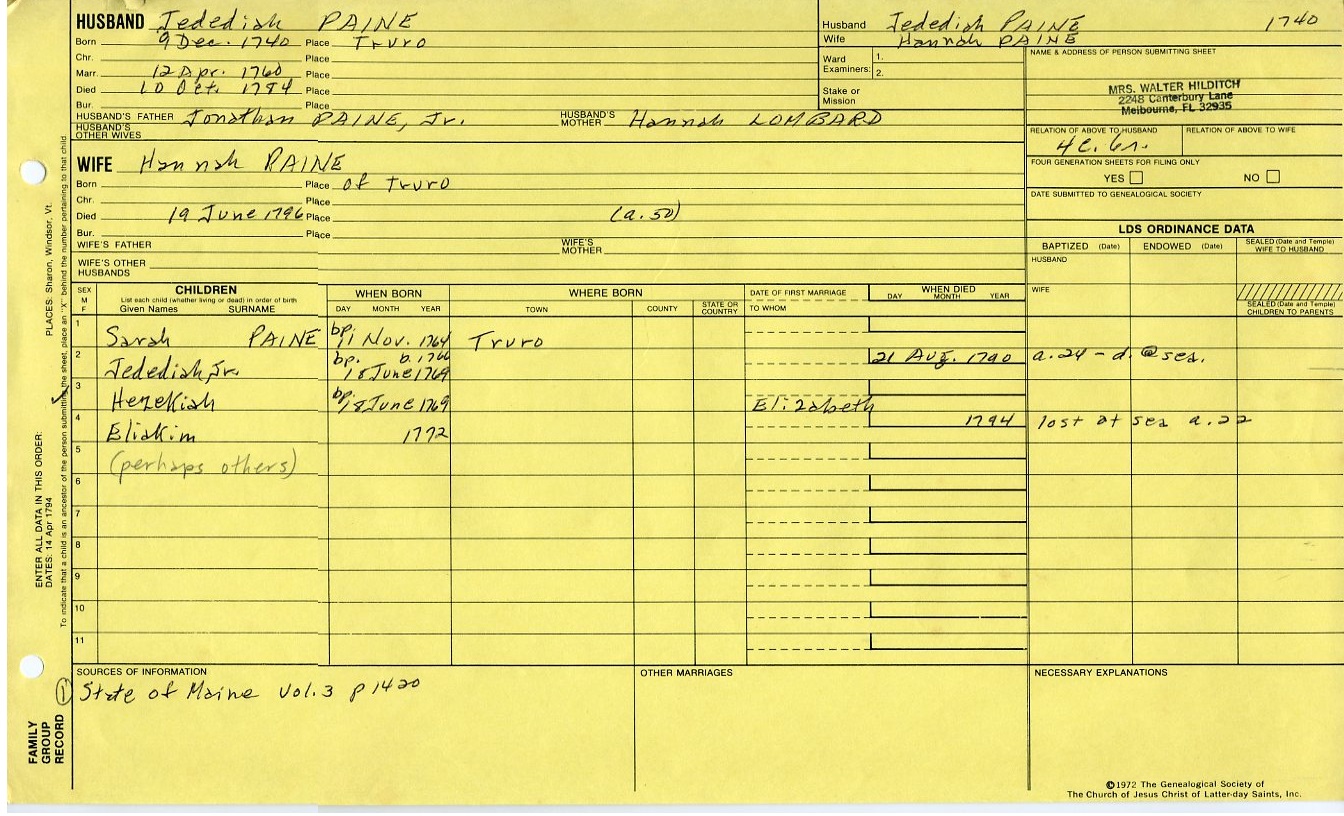 HUSBAND Jedediah PAINE
Born 9 Dec. 1740 Place Truro
Chr. Place
Marr. 12 Apr. 1760 Place
Died 10 Oct. 1784 Place
Bur. Place
HUSBAND'S FATHER Jonathan PAINE, Jr. HUSBAND'S MOTHER Hannah LOMBARD
HUSBAND'S OTHER WIVES
Husband Jedediah PAINE 1740
Wife Hannah PAINE
Ward Examiners: 1.
2.
Stake or Mission
NAME & ADDRESS OF PERSON SUBMITTING SHEET
MRS. WALTER HILDITCH
2248 Canterbury Lane
Melbourne, FL 32935
RELATION OF ABOVE TO HUSBAND RELATION OF ABOVE TO WIFE
4c. 6r.
FOUR GENERATION SHEETS FOR FILING ONLY
YES NO
DATE SUBMITTED TO GENEALOGICAL SOCIETY
WIFE Hannah PAINE
Born Place of Truro
Chr. Place
Died 19 June 1796 Place (a. 50)
Bur. Place
WIFE'S FATHER WIFE'S MOTHER
WIFE'S OTHER HUSBANDS
LDS ORDINANCE DATA
BAPTIZED (Date) ENDOWED (Date) SEALED (Date and Temple) WIFE TO HUSBAND
HUSBAND
WIFE
SEALED (Date and Temple) CHILDREN TO PARENTS
SEX M F
CHILDREN
List each child (whether living or dead) in order of birth
Given Names SURNAME
WHEN BORN
DAY MONTH YEAR
WHERE BORN
TOWN COUNTY STATE OR COUNTRY
DATE OF FIRST MARRIAGE
TO WHOM
WHEN DIED
DAY MONTH YEAR
1 Sarah PAINE bp. 11 Nov. 1764 Truro
2 Jedediah, Jr. bp. b. 1766 18 June 1769 21 Aug. 1790 a. 24 - d. @ sea.
3 Hezekiah bp. 18 June 1769 Elizabeth
4 Eliakim 1772 1794 lost at sea a. 22
5 (perhaps others)
6
7
8
9
10
11
SOURCES OF INFORMATION
① State of Maine Vol. 3 p 1420
OTHER MARRIAGES
NECESSARY EXPLANATIONS
©1972 The Genealogical Society of
The Church of Jesus Christ of Latter-day Saints, Inc.
PLACES: Sharon, Windsor, Vt.
To indicate that a child is an ancestor of the person submitting the sheet, place an "X" behind the number pertaining to that child.
ENTER ALL DATA IN THIS ORDER:
DATES: 14 Apr 1794
FAMILY
GROUP
RECORD